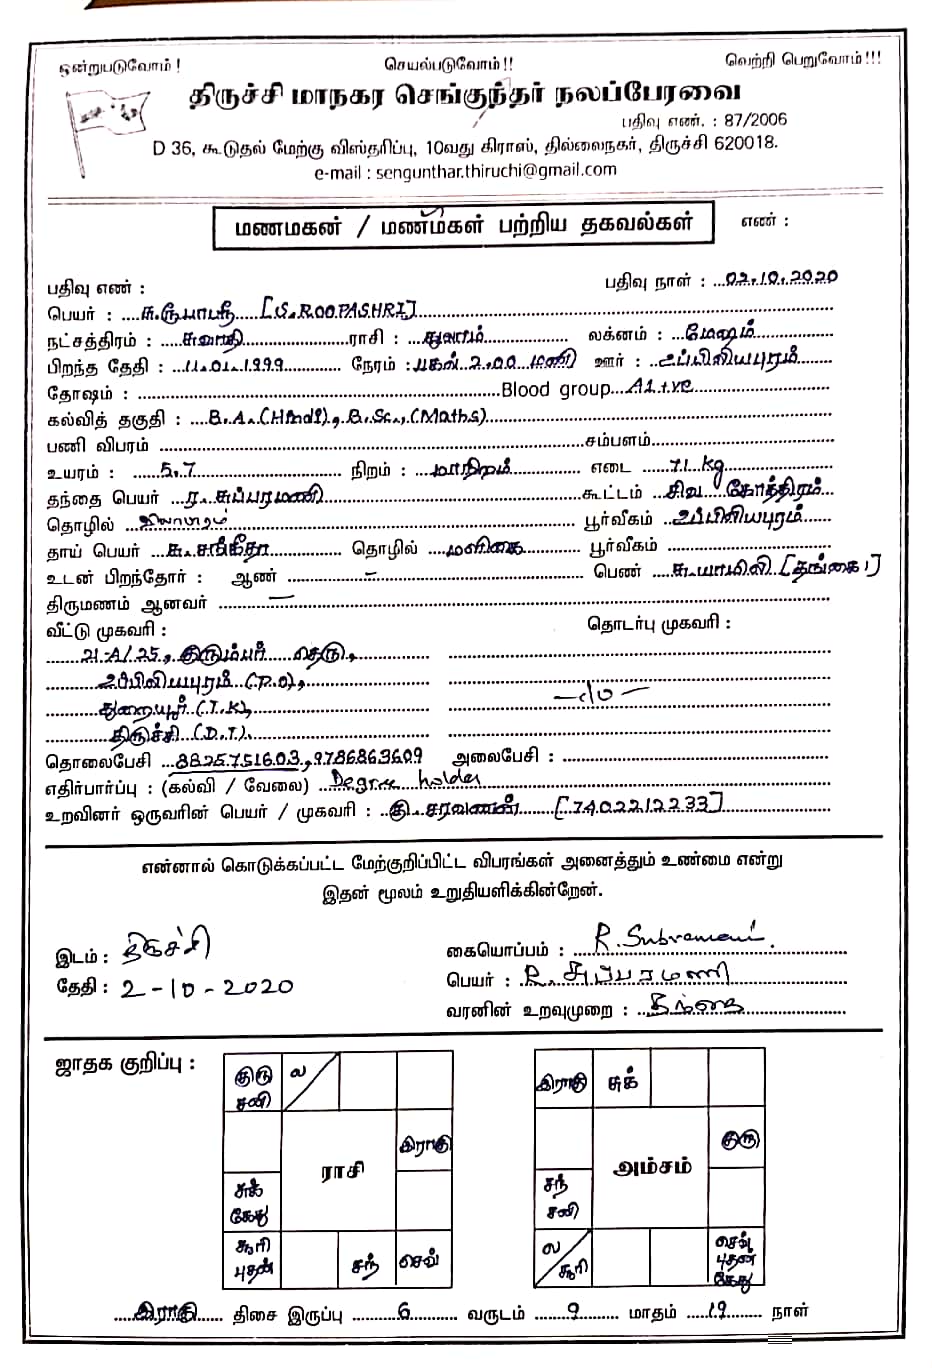 ஒன்றுபடுவோம் ! செயல்படுவோம் !! வெற்றி பெறுவோம் !!!
திருச்சி மாநகர செங்குந்தர் நலப்பேரவை
பதிவு எண். : 87/2006
D 36, கூடுதல் மேற்கு விஸ்தரிப்பு, 10வது கிராஸ், தில்லைநகர், திருச்சி 620018.
e-mail : sengunthar.thiruchi@gmail.com
மணமகன் / மணமகள் பற்றிய தகவல்கள் எண் :
பதிவு எண் : பதிவு நாள் : 02.10.2020
பெயர் : சு.ரூபாஸ்ரீ [S.ROOPASHRI]
நட்சத்திரம் : சுவாதி ராசி : துலாம் லக்னம் : மேஷம்
பிறந்த தேதி : 11.01.1999 நேரம் : பகல் 2.00 மணி ஊர் : உப்பிலியபுரம்
தோஷம் : Blood group A1+ve
கல்வித் தகுதி : B.A.(Hindi), B.Sc.,(Maths)
பணி விபரம் சம்பளம்
உயரம் : 5.7 நிறம் : மாநிறம் எடை 71 kg
தந்தை பெயர் ர.சுப்பரமணி கூட்டம் சிவ கோத்திரம்
தொழில் விவசாயம் பூர்வீகம் உப்பிலியபுரம்
தாய் பெயர் சு.சங்கீதா தொழில் மளிகை பூர்வீகம்
உடன் பிறந்தோர் : ஆண் – பெண் சு.யாமிலி [தங்கை]
திருமணம் ஆனவர் –
வீட்டு முகவரி : தொடர்பு முகவரி :
21-A/25, திரும்பர் தெரு,
உப்பிலியபுரம் (P.O),
துறையூர் (T.K), –do–
திருச்சி (D.T).
தொலைபேசி 8825751603, 9786863609 அலைபேசி :
எதிர்பார்ப்பு : (கல்வி / வேலை) Degree holder
உறவினர் ஒருவரின் பெயர் / முகவரி : கு. சரவணன் [7402212233]
என்னால் கொடுக்கப்பட்ட மேற்குறிப்பிட்ட விபரங்கள் அனைத்தும் உண்மை என்று
இதன் மூலம் உறுதியளிக்கின்றேன்.
இடம் : திருச்சி கையொப்பம் : R. Subramani.
தேதி : 2-10-2020 பெயர் : R. சுப்பரமணி
வரனின் உறவுமுறை : தந்தை
ஜாதக குறிப்பு :
குரு சனி ல
கிராகு
ராசி
சுக் கேது
சூரி புதன் சந் செவ்
கிராகு சுக்
குரு
அம்சம்
சந் சனி
ல சூரி செவ் புதன் கேது
இராகு திசை இருப்பு 6 வருடம் 9 மாதம் 19 நாள்